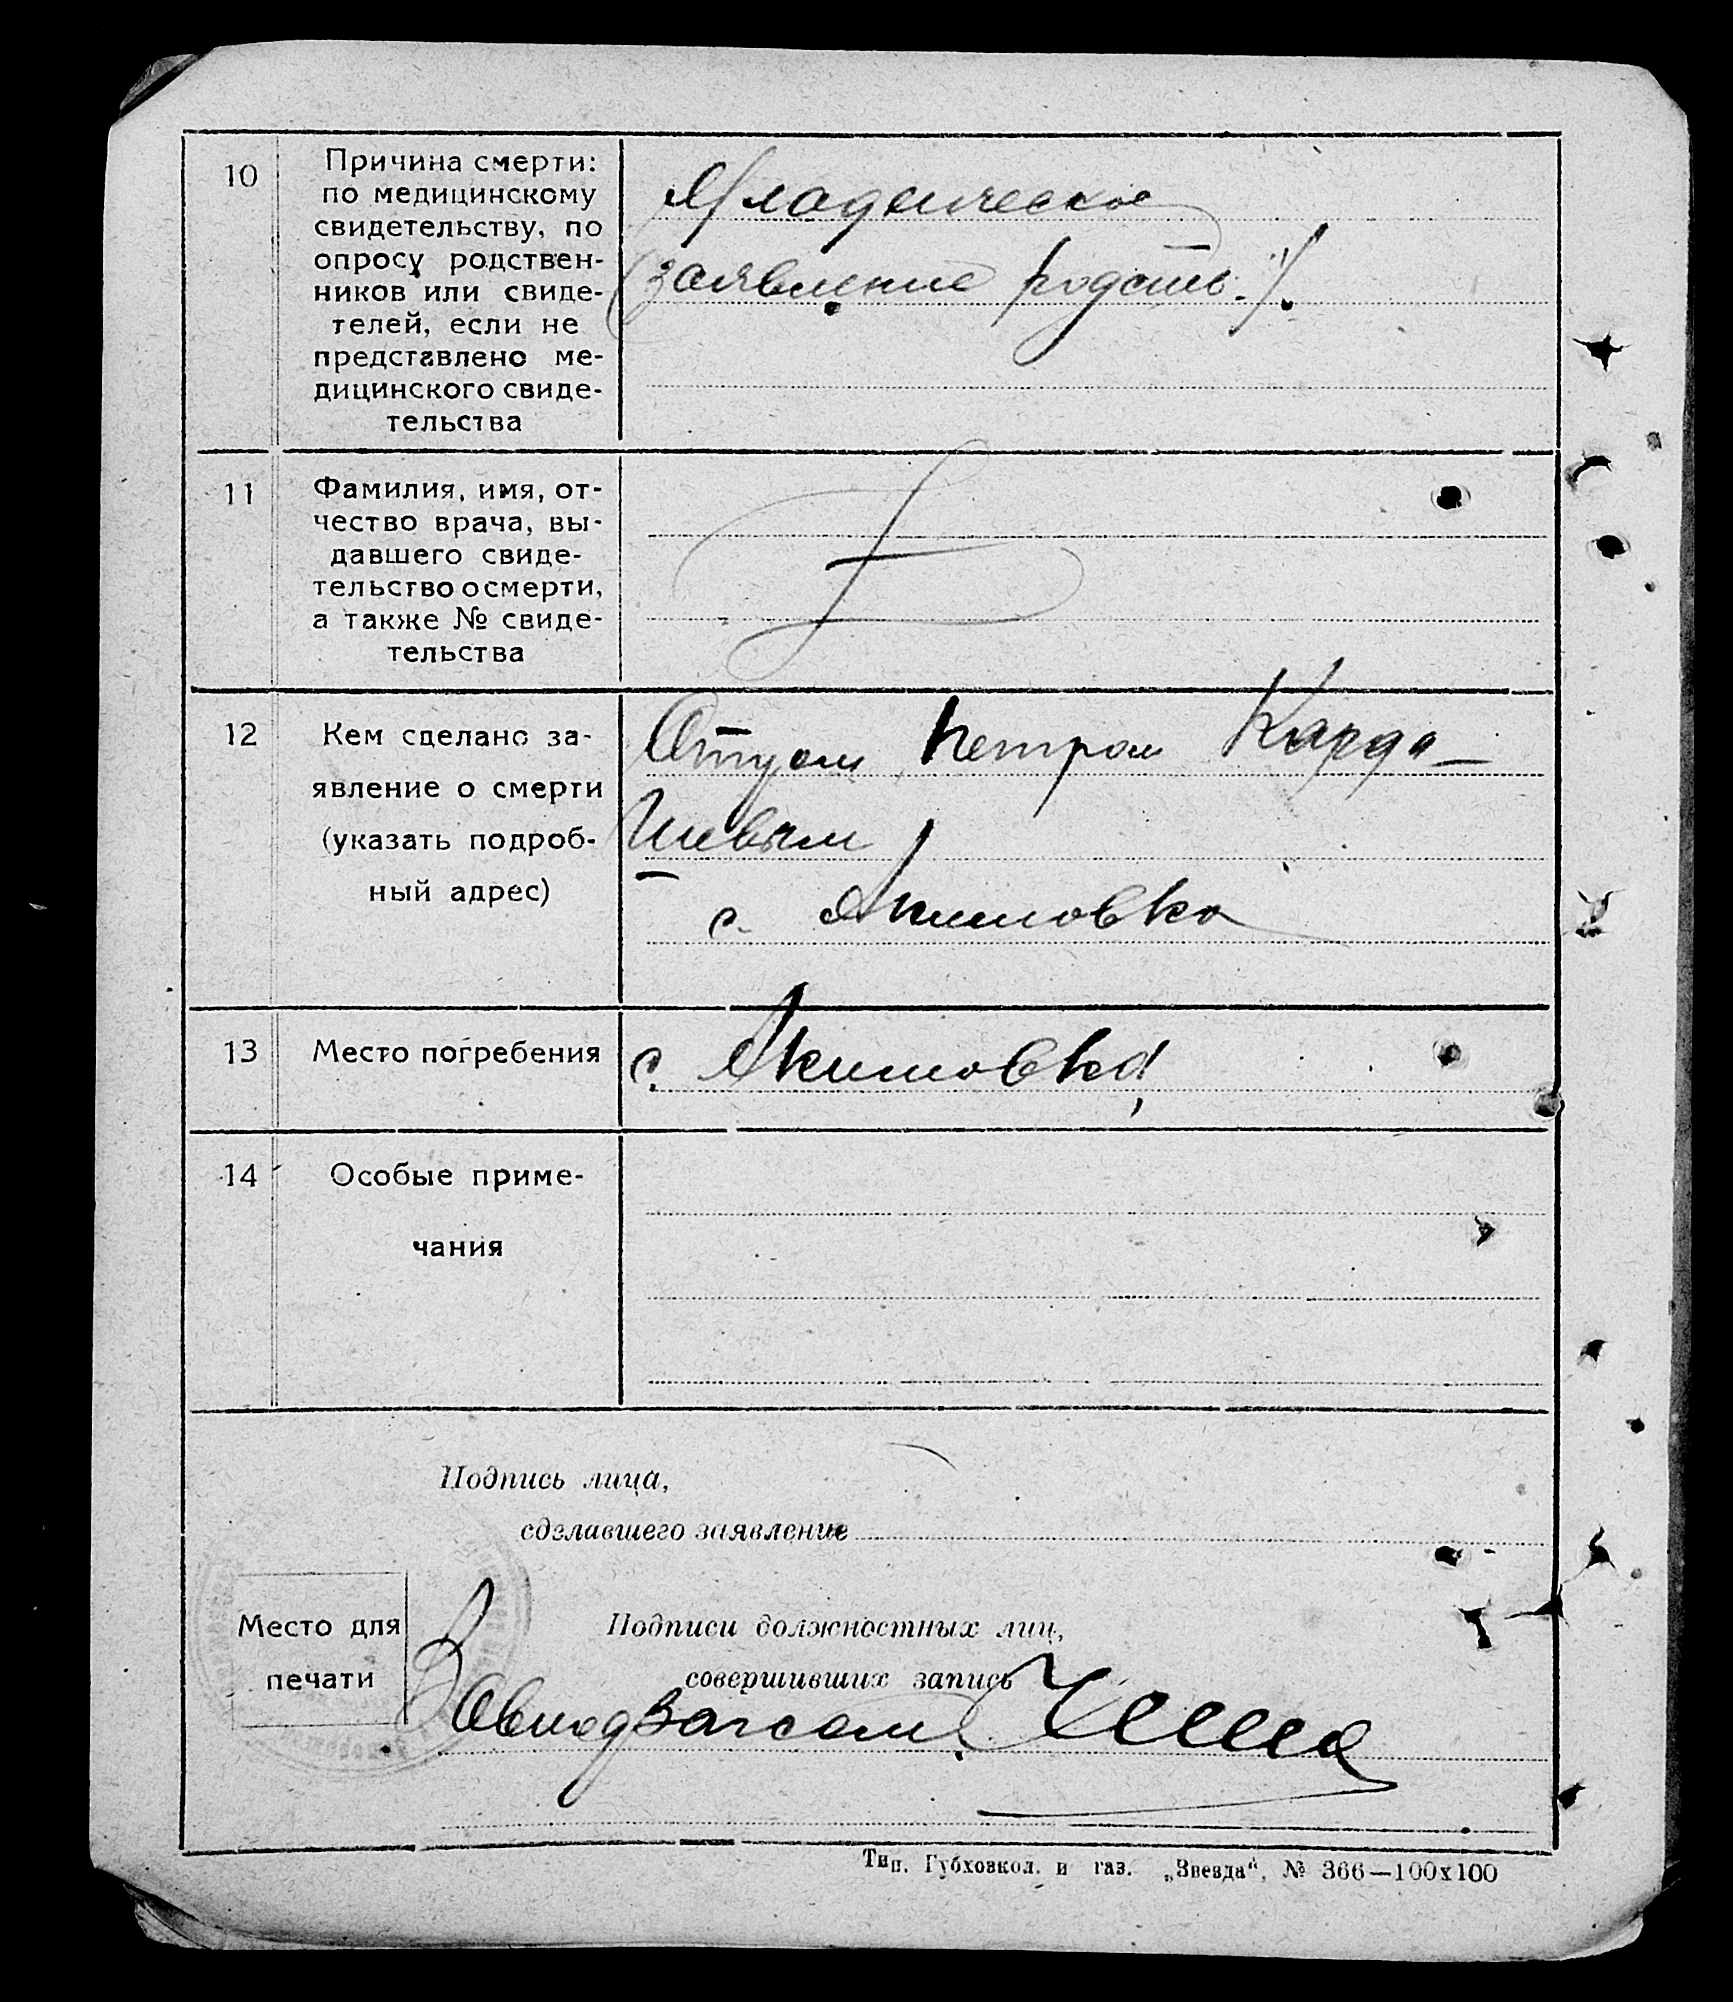 10
Причина смерти:
по медицинскому
свидетельству, по
опросу родствен-
ников или свиде-
телей, если не
представлено ме-
дицинского свиде-
тельства
Младенческое
(заявление родств.).
11
Фамилия, имя, от-
чество врача, вы-
давшего свиде-
тельство о смерти,
а также № свиде-
тельства
12
Кем сделано за-
явление о смерти
(указать подроб-
ный адрес)
Отцом Петром Карда-
шевым
с. Акимовка
13
Место погребения
с. Акимовка
14
Особые приме-
чания
Подпись лица,
сделавшего заявление
Место для
печати
Подписи должностных лиц,
совершивших запись
Завподзагсом
Тип. Губхозкол. и газ. „Звезда“, № 366—100х100